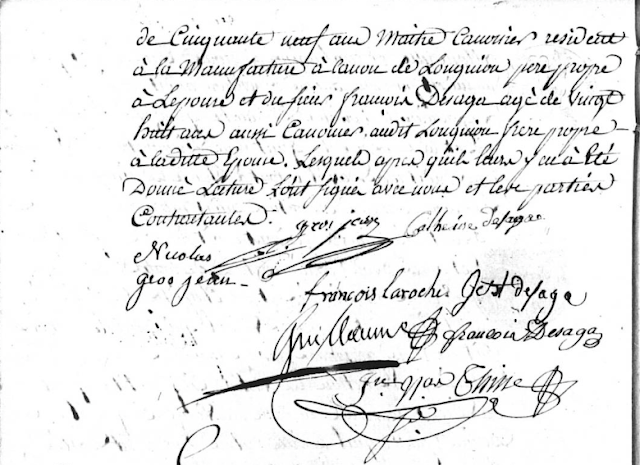 de Cinquante neuf ans Maitre Canonier resident
à la Manufacture à Canon de Longuion pere propre
à Lepouse et du sieur françois Desaga agé de Vingt
huit ans aussi Canonier audit Longuion frere propre
à laditte Epouse. Lesquels apres qu'il leurs y en à Eté
Donné Lecture L'ont signés avec nous et les parties
Contractantes.
gros jean Catherine desaga
Nicolas
gros jean
françois laroche J Bt desaga
Guillaume françois Desaga